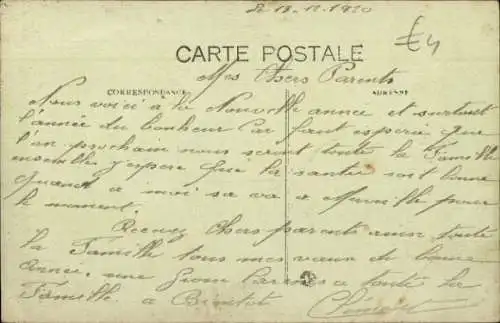 1920
€4
CARTE POSTALE
Mes Chers Parents
CORRESPONDANCE
Nous voici à la Nouvelle année et surtout
l'année du bonheur Car faut esperer que
l'an prochain nous seront toute la Famille
ensemble j'espere que la santer soit bonne
Quand a moi sa va a Merveille pour
le moment.
Recevez Chers parents ainsi toute
la Famille tous mes vœux de bonne
année, une Gross Caresses a toute la
Famille a Bientot